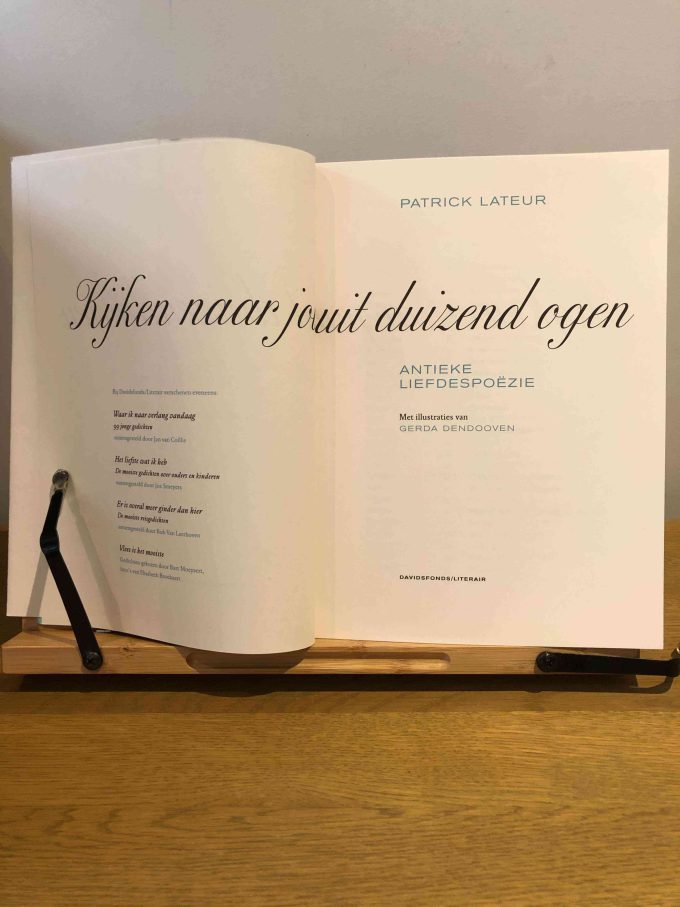 Kijken naar jou uit duizend ogen
Bij Davidsfonds/Literair verschenen eveneens:
Waar ik naar verlang vandaag
99 jonge gedichten
samengesteld door Jan van Coillie
Het liefste wat ik heb
De mooiste gedichten over ouders en kinderen
samengesteld door Jos
Er is overal meer ginder dan hier
De mooiste reisgedichten
samengesteld door Rob Van
Vlees is het mooiste
Gedichten gekozen door Bart Moeyaert,
foto's van Elisabeth Broekaert
PATRICK LATEUR
ANTIEKE
LIEFDESPOËZIE
Met illustraties van
GERDA DENDOOVEN
DAVIDSFONDS/LITERAIR